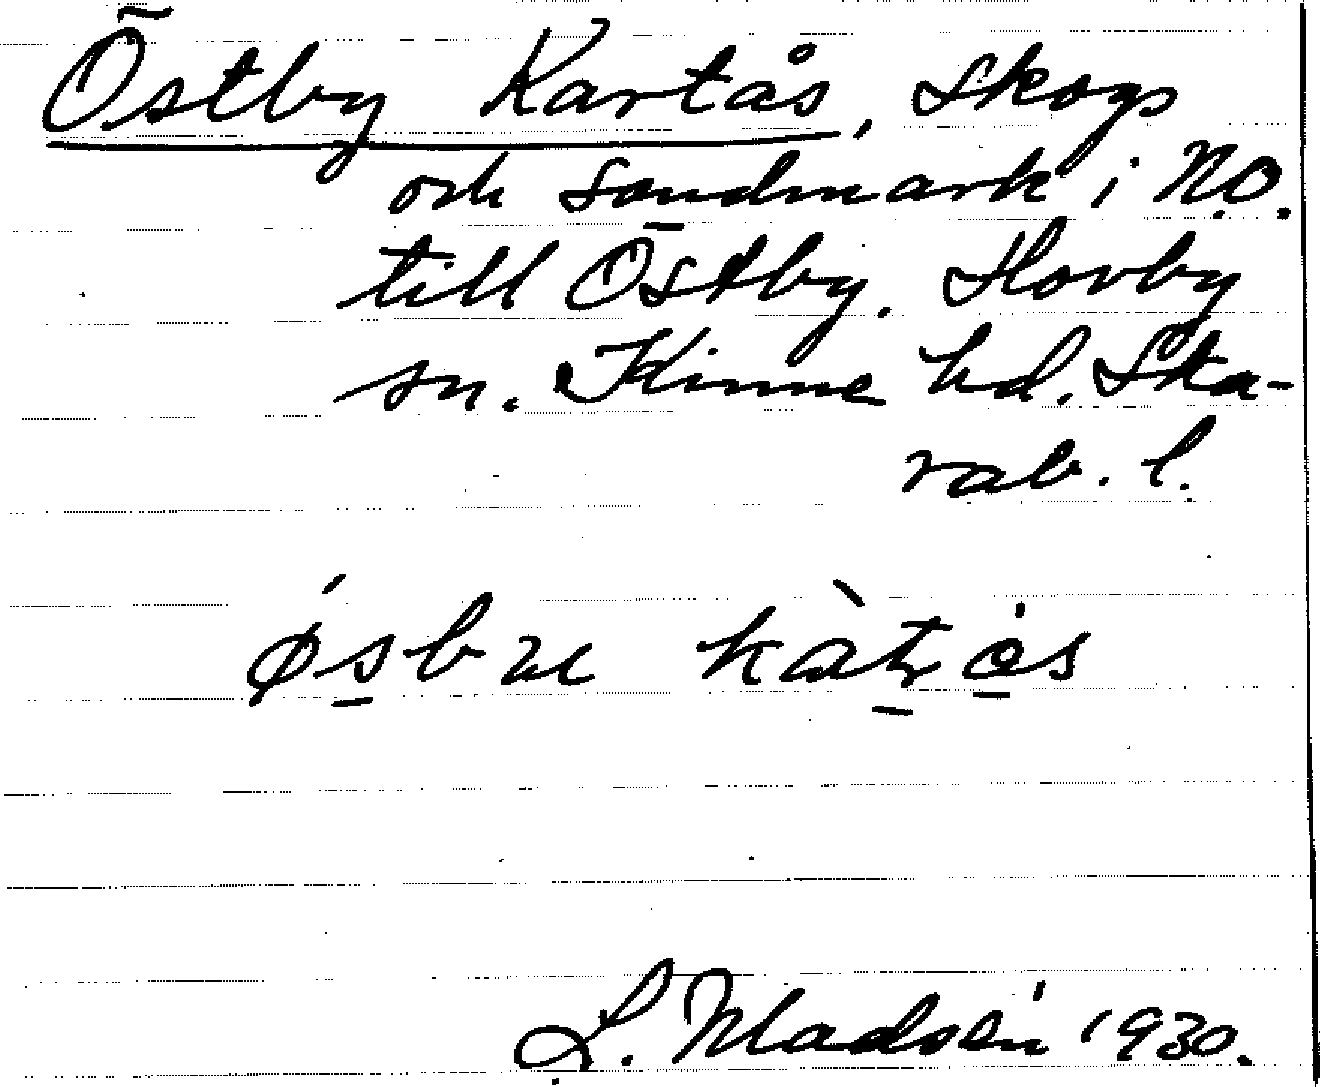 Östby Kartås, Skogs
och sandmark i N.O.
till Östby. Hovby
sn. Kinne hd. Ska-
rab. l.
L. Madsén 1930.